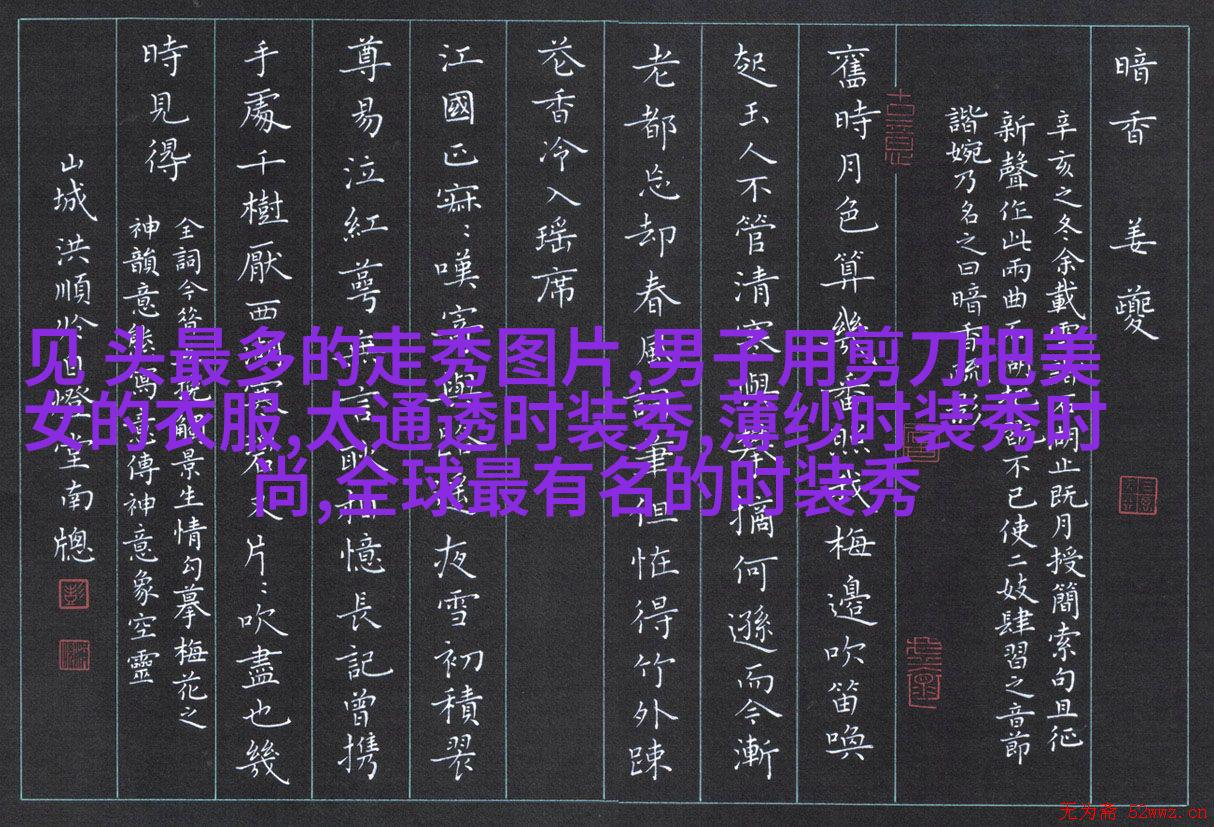 暗香 姜夔
辛亥之冬余載雪詣石湖止既月授簡索句且征
新聲作此兩曲石湖把玩不已使二妓肆習之音節
諧婉乃名之曰暗香疏影
古意
舊時月色算幾番照我梅邊吹笛喚
起玉人不管清寒與攀摘何遜而今漸
老都忘却春風詞筆但怪得竹外疎
花香冷入瑶席
江國正寂：嘆寄與路遙夜雪初積翠
尊易泣紅萼無言耿相憶長記曾携
手處千樹壓西湖寒碧又片：吹盡也幾
時見得
全詞今昔
景生情勾摹梅花之
神韻意態寫意傳神意象空靈
山城洪順
堂南牕
见 头最多的走秀图片,男子用剪刀把美
女的衣服,大通透时装秀,薄纱时装秀时
尚,全球最有名的时装秀
无为斋 52wwz.cn